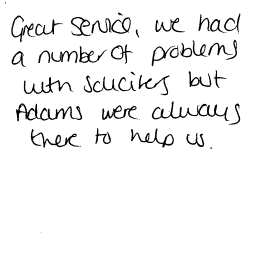 Great service, we had
a number of problems
with soliciters but
Adams were always
there to help us.